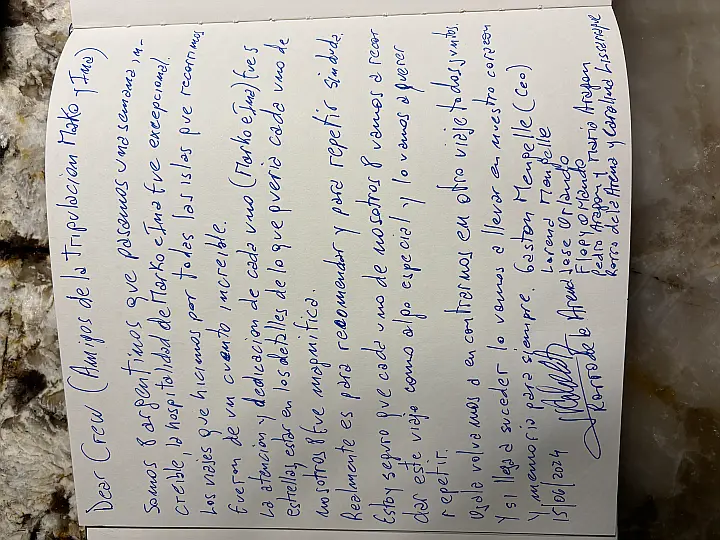 Dear Crew (Amigos de la tripulación Marko y Ima)
Somos 8 argentinos que pasamos una semana in-
creíble, la hospitalidad de Marko e Ima fue excepcional.
Los viajes que hicimos por todas las islas que recorrimos
fueron de un cuento increíble.
La atención y dedicación de cada uno (Marko e Ima) fue 5
Estrellas, estar en los detalles de lo que quería cada uno de
nosotros 8 fue magnífica.
Realmente es para recomendar y para repetir sin duda.
Estoy seguro que cada uno de nosotros 8 vamos a recor
dar este viaje como algo especial y lo vamos a querer
repetir.
Ojala volvamos a encontrarnos en otro viaje todos juntos.
Y si llega a suceder lo vamos a llevar en nuestro corazon
Y memoria para siempre.
15/06/2024
Rorro de la Arena
Gaston (Ceo)
Lorena
Jose Orlando
Flopy Orlando
Pedro Aragon y Maria Aragon
Rorro de la Arena y Carolina